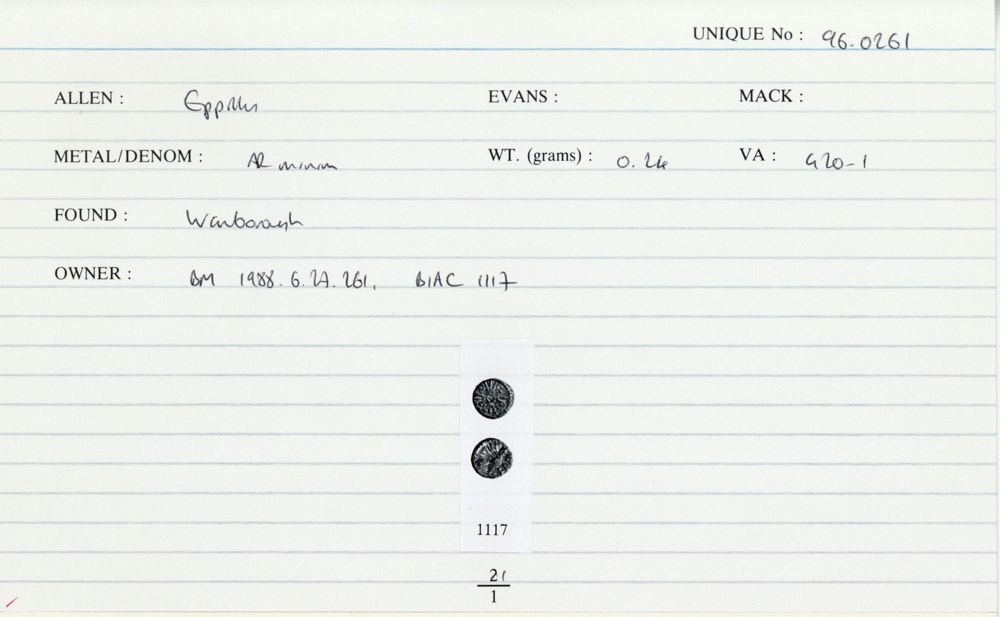 UNIQUE No : 96.0261
ALLEN : Eppillus EVANS : MACK :
METAL/DENOM : AR minim WT. (grams) : 0.24 VA : 420-1
FOUND : Wanborough
OWNER : BM 1988.6.27.261, BIAC 1117
1117
21
1